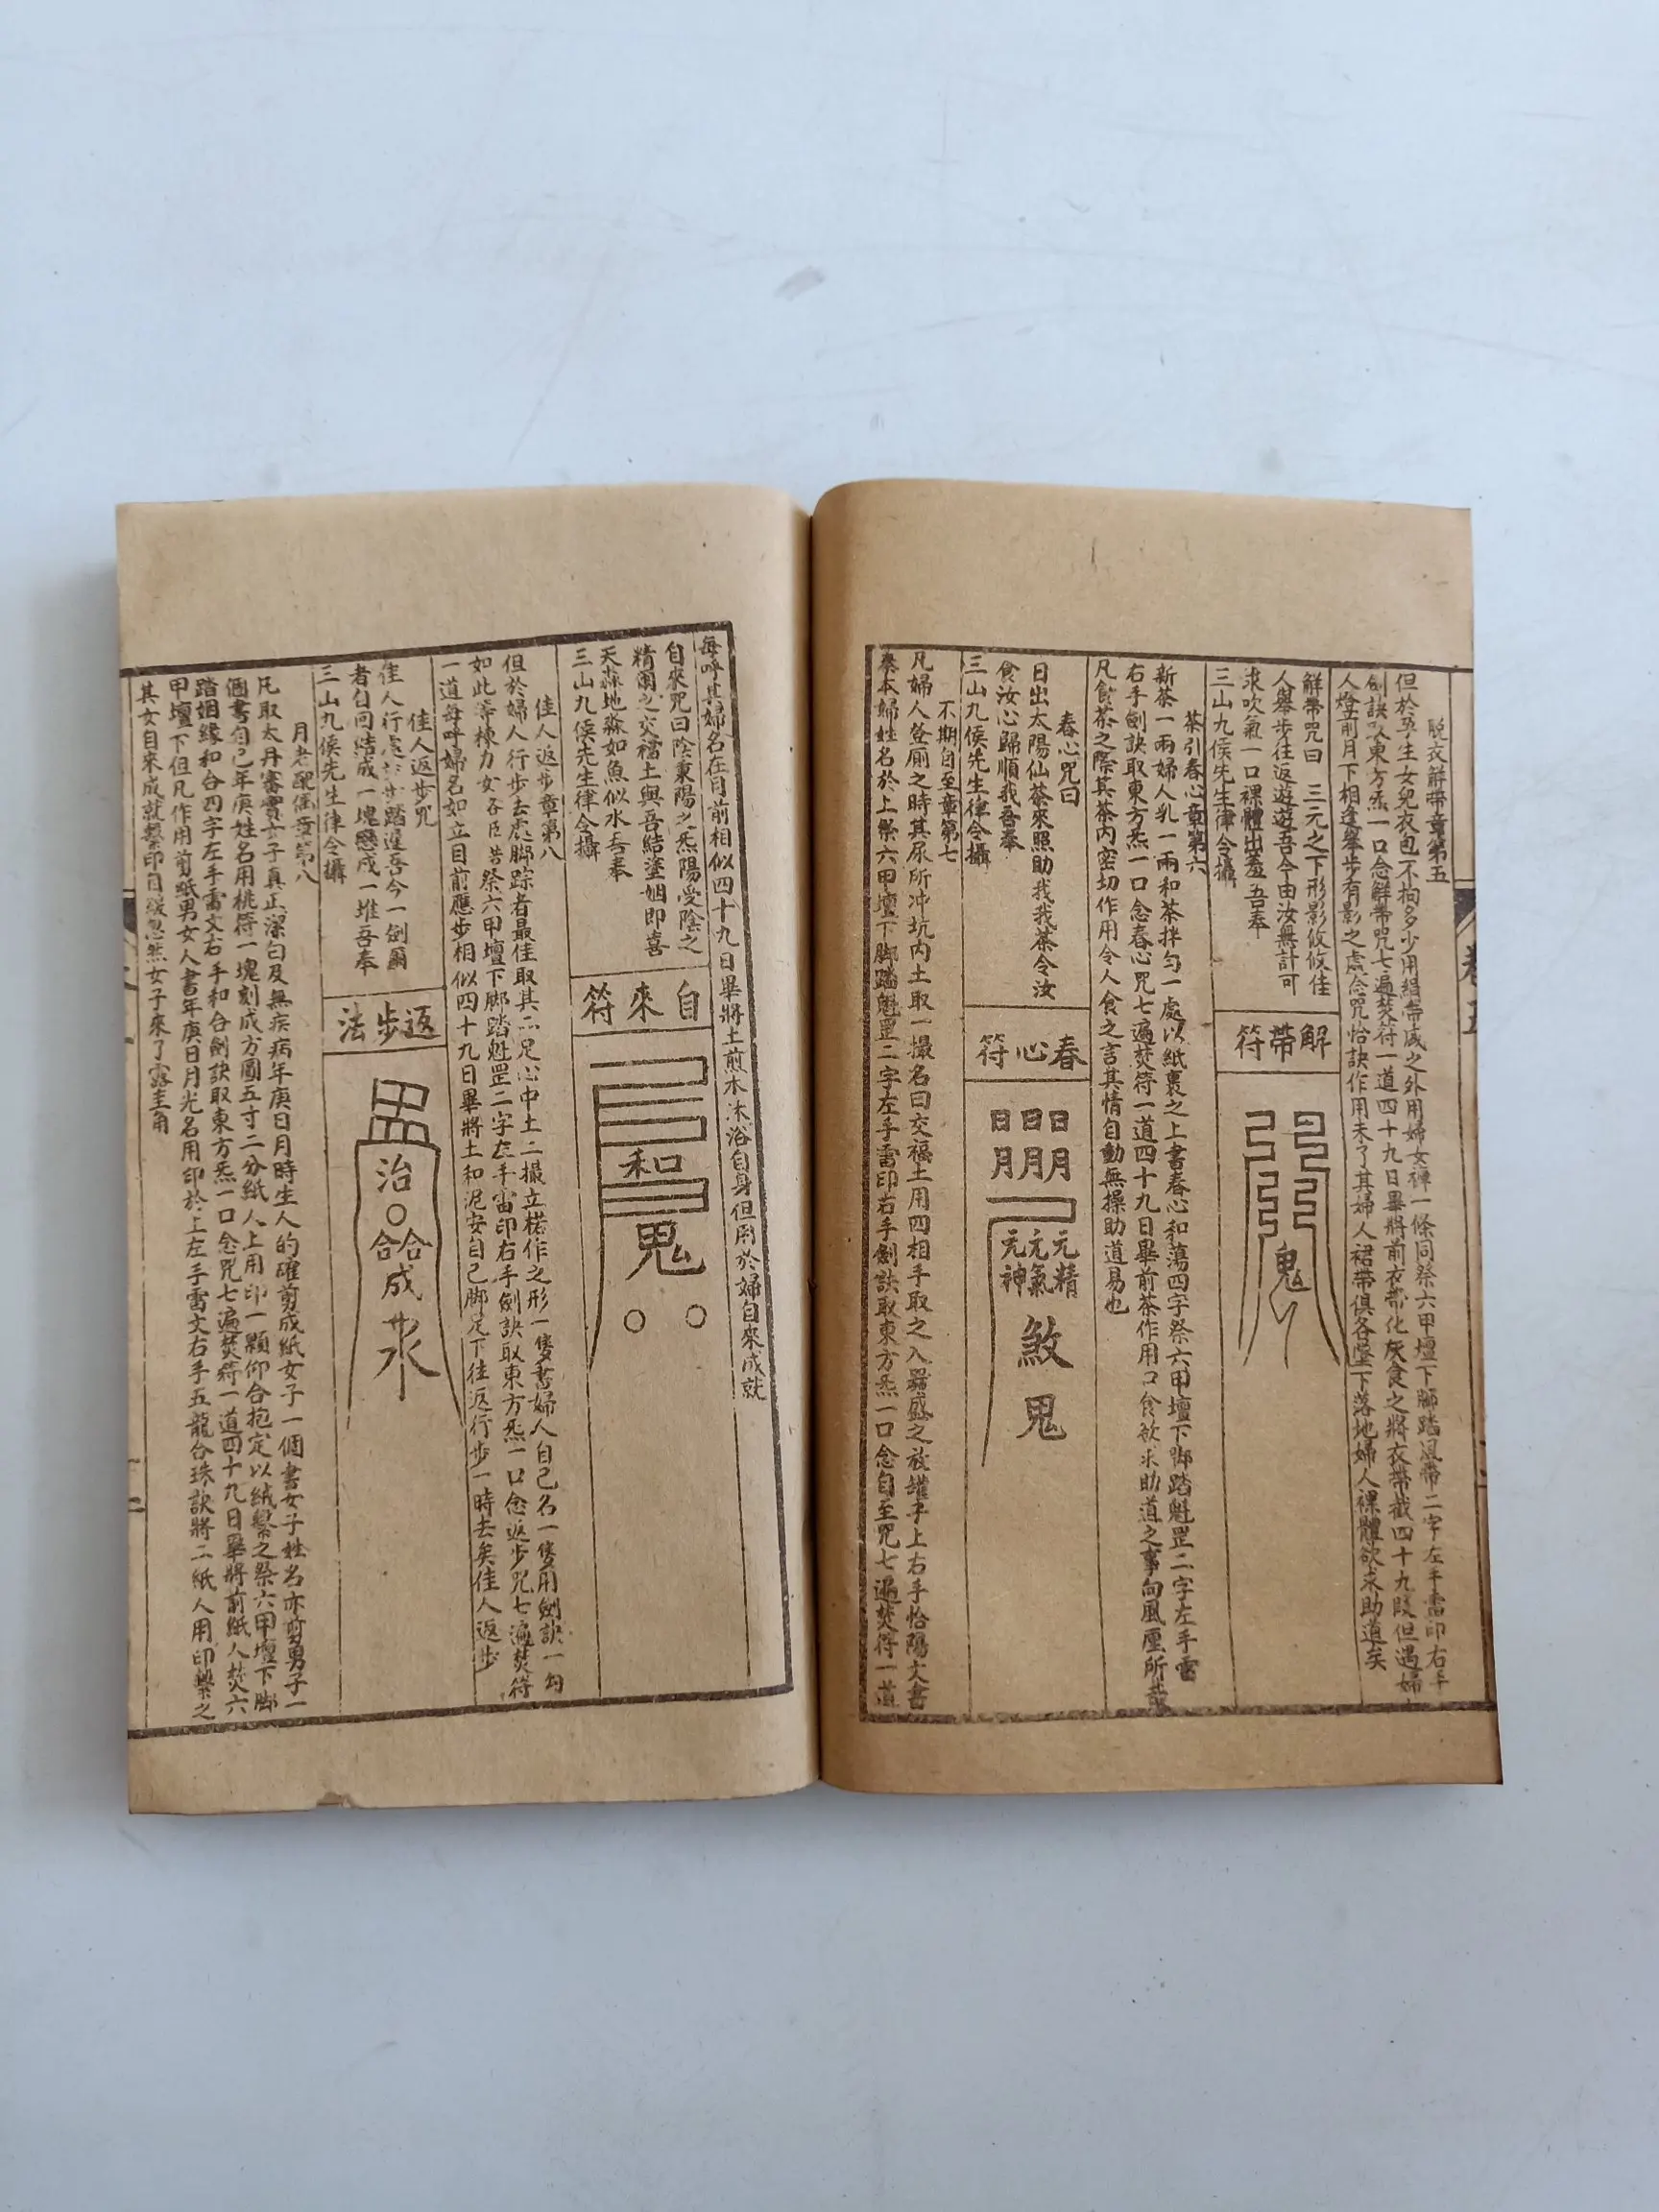 脫衣解帶章第五
但於孕生女兒衣包不拘多少用絹帶咸之外用婦女褌一條同祭六甲壇下腳踏風帶二字左手雷印右手
劍訣取東方炁一口念解帶咒七遍焚符一道四十九日畢將前衣都化灰食之將衣帶截四十九段但遇婦
人燈前月下相逢舉步有影之處念咒怡訣作用未了其婦人裙帶俱各墜下落地婦人裸體欲求助道矣
解帶咒曰 三元之下形影攸攸佳
人舉步往返遊遊吾今由汝無計可
求吹氣一口裸體出羞吾奉
三山九侯先生律令攝
解帶符
鬼
茶引春心章第六
新茶一兩婦人乳一兩和茶拌勻一處以紙裹之上書春心和蕩四字祭六甲壇下腳踏魁罡二字左手雷
右手劍訣取東方炁一口念春心咒七遍焚符一道四十九日畢前茶作用口食欲求助道之事向風厘所哉
凡飲茶之際其茶內密切作用令人食之言其情自動無操助道易也
春心咒曰
日出太陽仙茶來照助我我茶令汝
食汝心歸順我吾奉
三山九侯先生律令攝
春心符
日日日日
月月月月
元精
元氣
元神
煞
鬼
不期自至章第七
凡婦人登厠之時其尿所冲坑內土取一撮名曰交福土用四相手取之入器盛之放罐子上右手恰陽文書
奏本婦姓名於上祭六甲壇下腳踏魁罡二字左手雷印右手劍訣取東方炁一口念自至咒七遍焚符一道
每呼其婦名在目前相似四十九日畢將土煎水沐浴自身但剛於婦自來成就
自來咒曰陰秉陽之炁陽受陰之
精團之交福土與吾結塗姻即喜
天淼地淼如魚似水吾奉
三山九侯先生律令攝
自來符
和
鬼
佳人返步章第八
但於婦人行步去處脚踪者最佳取其二足心中土二撮立楮作之形一隻書婦人自己名一隻用劍訣一勾
如此等棟力女各臣皆祭六甲壇下脚踏魁罡二字左手雷印右手劍訣取東方炁一口念返步咒七遍焚符
一道每呼婦名如立目前應步相似四十九日畢將土和泥安自己脚足下往返行步一時去矣佳人返步
佳人返步咒
佳人行處步步踏遲吾今一劍爾
者自回結成一塊戀成一堆吾奉
三山九侯先生律令攝
返步法
治
合合
成
水
月老配偶章第八
凡取太丹審實女子真正潔白及無疾病年庚日月時生人的確剪成紙女子一個書女子姓名亦剪男子一
個書自己年庚姓名用桃符一塊刻成方圓五寸二分紙人上用印一顆仰合抱定以絨繫之祭六甲壇下脚
踏姻緣和合四字左手雷文右手和合劍訣取東方炁一口念咒七遍焚符一道四十九日畢將前紙人焚六
甲壇下但凡作用剪紙男女人書年庚日月光名用印於上左手雷文右手五龍合珠訣將二紙人用印繫之
其女自來成就繫印自緩忽然女子來了露圭角